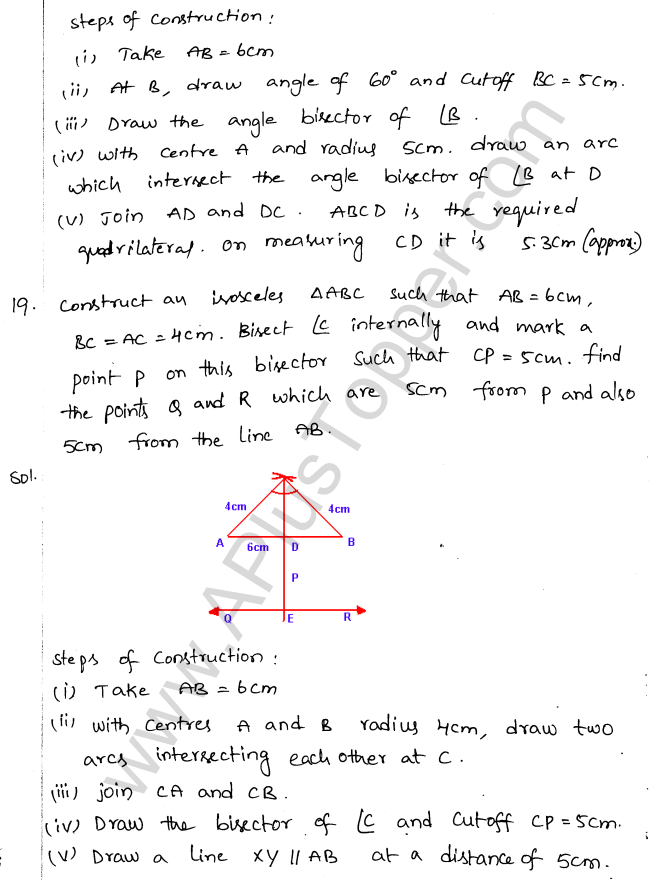 Steps of Construction :
(i) Take AB = 6cm
(ii) At B, draw angle of 60° and Cutoff BC = 5cm.
(iii) Draw the angle bisector of ∠B .
(iv) with centre A and radius 5cm. draw an arc
which intersect the angle bisector of ∠B at D
(v) Join AD and DC . ABCD is the required
quadrilateral. on measuring CD it is 5.3cm (approx.)
19. Construct an isosceles ΔABC such that AB = 6cm,
BC = AC = 4cm. Bisect ∠C internally and mark a
point P on this bisector such that CP = 5cm. find
the points Q and R which are 5cm from P and also
5cm from the line AB.
Sol.
4cm 4cm
A 6cm D B
P
Q E R
Steps of Construction :
(i) Take AB = 6cm
(ii) with centres A and B radius 4cm, draw two
arcs intersecting each other at C .
(iii) join CA and CB .
(iv) Draw the bisector of ∠C and Cutoff CP = 5cm.
(v) Draw a line XY || AB at a distance of 5cm.
www.APlusTopper.com